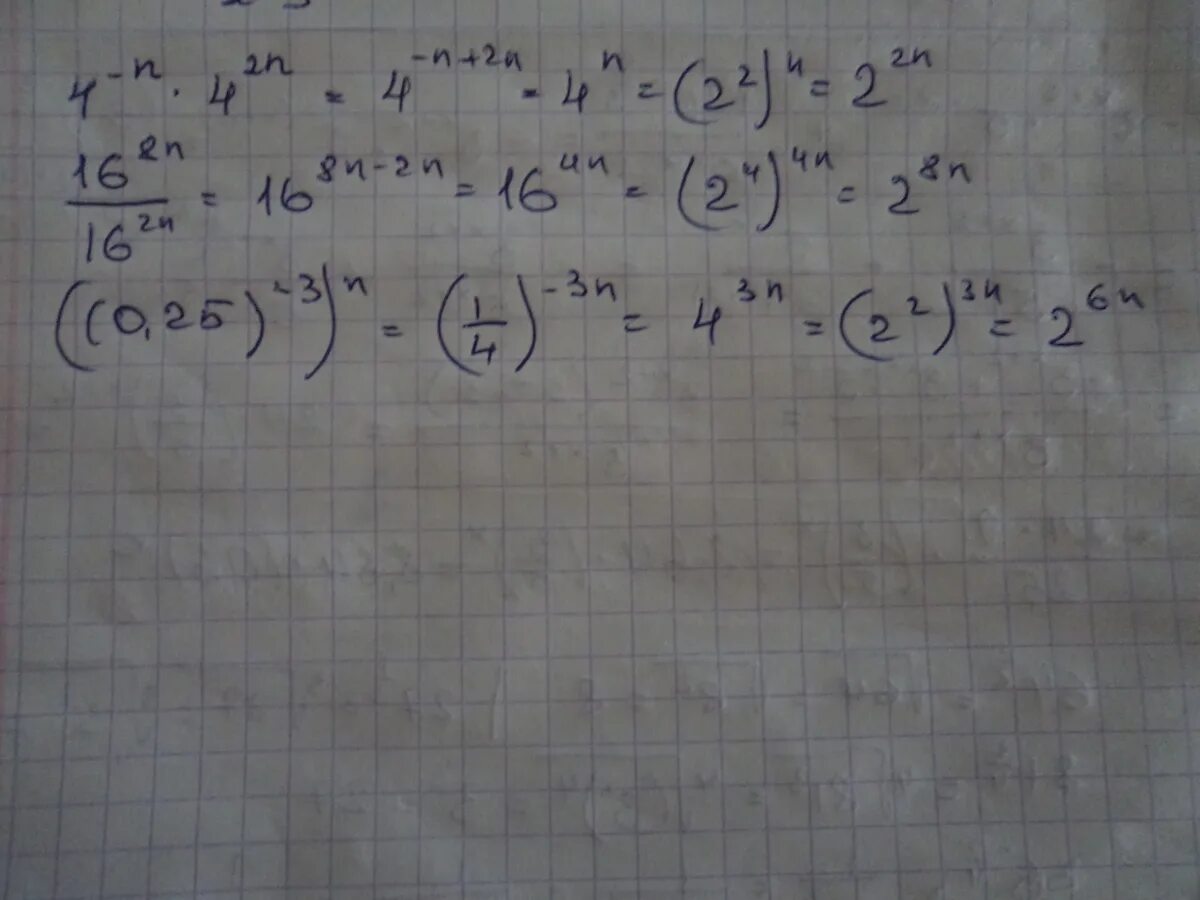 4^{-n} · 4^{2n} = 4^{-n+2n} = 4^n = (2^2)^n = 2^{2n}
\frac{16^{8n}}{16^{2n}} = 16^{8n-2n} = 16^{4n} = (2^4)^{4n} = 2^{8n}
((0,25)^{-3})^n = (\frac{1}{4})^{-3n} = 4^{3n} = (2^2)^{3n} = 2^{6n}